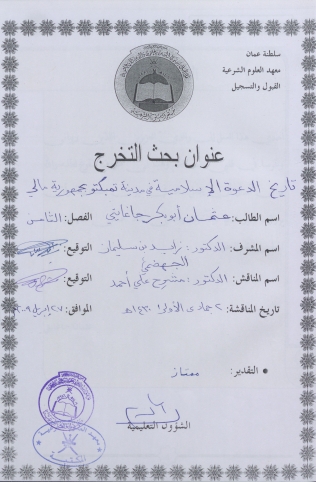 سلطنة عمان
معهد العلوم الشرعية
القبول والتسجيل
عنوان بحث التخرج
تاريخ الدعوة الإسلامية في مدينة تمبكتو بجمهورية مالي
اسم الطالب: عثمان أبوبكر جاغايتي الفصل: الثامن
اسم المشرف: الدكتور: زايد بن سليمان الجهضمي التوقيع:
اسم المناقش: الدكتور: علي أحمد التوقيع:
تاريخ المناقشة: ٢ جمادى الأولى ١٤٣٠هـ الموافق: ٢٧ إبريل ٢٠٠٩م
التقدير: ممتاز
الشؤون التعليمية